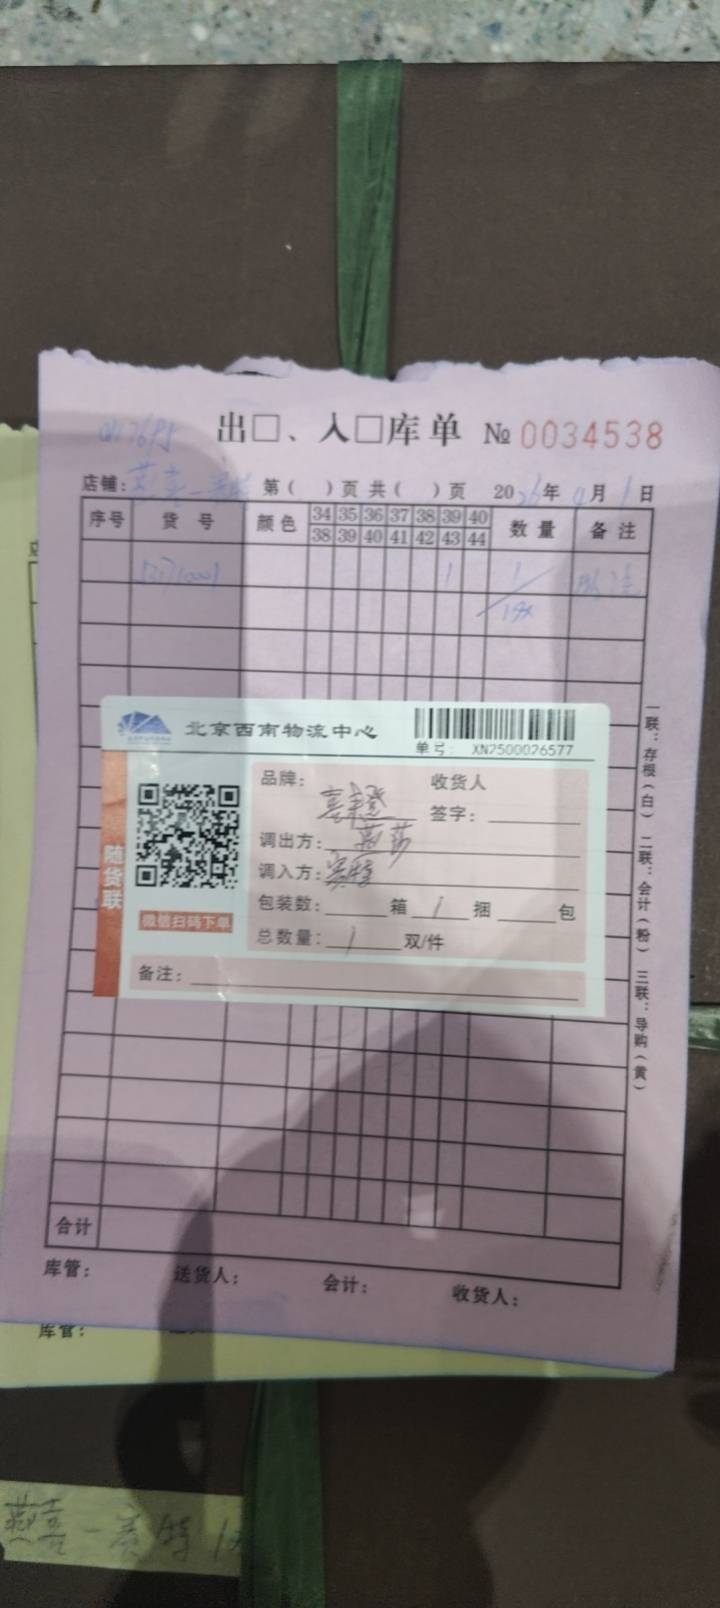 出□、入□库单 № 0034538
店铺: 第( )页 共( )页 2026年 月1日
序号 货号 颜色 34 35 36 37 38 39 40 数量 备注
38 39 40 41 42 43 44
1 1
北京西南物流中心
单号: XN2500026577
随货联
微信扫码下单
品牌: 收货人
签字:
调出方: 燕莎
调入方: 赛特
包装数: 箱 1 捆 包
总数量: 1 双/件
备注:
一联:存根(白) 二联:会计(粉) 三联:导购(黄)
合计
库管: 送货人: 会计: 收货人:
库管:
燕喜－赛特